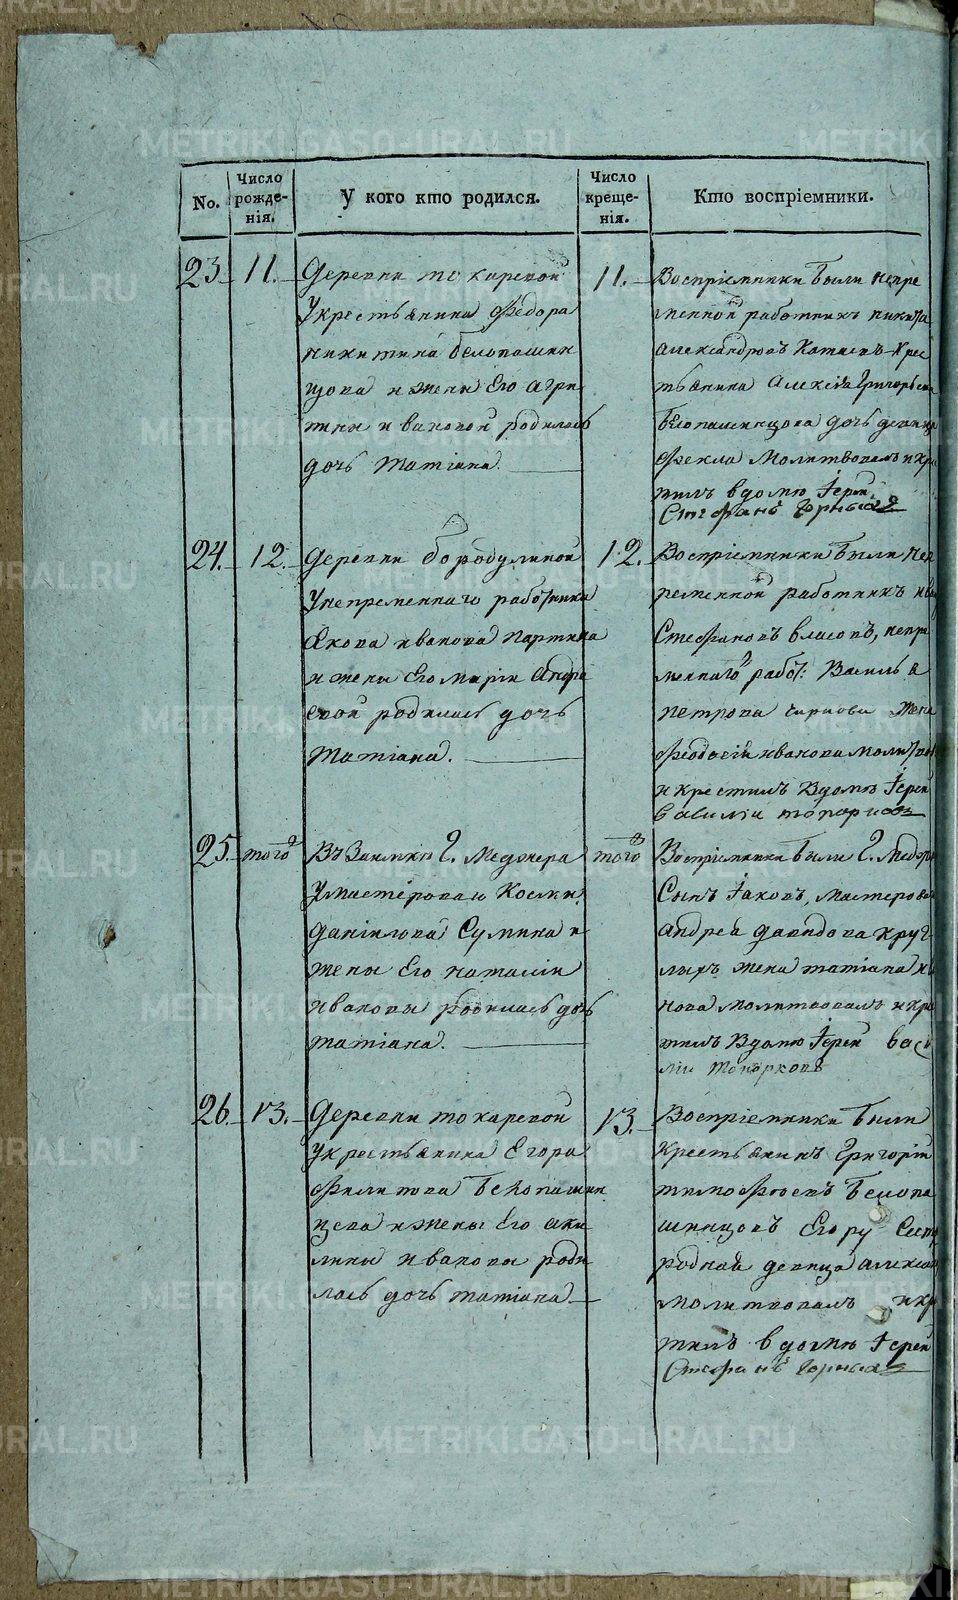 No.
Число рожде-нія.
У кого кто родился.
Число креще-нія.
Кто воспріемники.
23
11.
Деревни токаревой
У крестьянина Федора
никитина белопашин
цова и жены Его агри
пины ивановой родилась
дочь татіана.
11.
Воспріемники были непре
менной работникъ никита
александровъ Катаевъ Крес
тьянина алексія Григорьева
белопашинцова дочь девица
Фекла молитвовалъ и кре
тилъ в домю Іерей
Стефанъ Горныхъ
24.
12.
Деревни бородулиной
У непременнаго работника
Якова иванова партина
и жены Его маріи андре
евой родилась дочь
татіана.
12.
Воспріемники были неп
ременной работникъ ива
Стефановъ власовъ, непре
меннаго работ: Василья
петрова жена
Феодосія иванова молитво
и крестилъ в домю Іерей
василій топорковъ
25.
того
Въ Заимке Г. Меджера
У мастероваго Космы
даніилова Сумина и
жены Его наталіи
ивановы родилась дочь
татіана.
того
Воспріемники были Г. Медже
Сынъ Іаковъ, мастерова
андрея давидова круг
лыхъ жена татіана ива
нова молитвовалъ и кре
тилъ в домю Іерей Васи
лій Топорковъ
26.
13.
Деревни токаревой
У крестьянина Егора
Филипова белопашин
цова и жены Его аки
лины ивановы роди
лась дочь татіана.
13.
Воспріемники были
крестьянинъ Григорій
тимофеевъ белопа
шинцовъ Егору Сест
родная девица алексан
молитвовалъ и кр
тилъ в домю Іерей
Стефанъ Горныхъ
METRIKI.GASO-URAL.RU